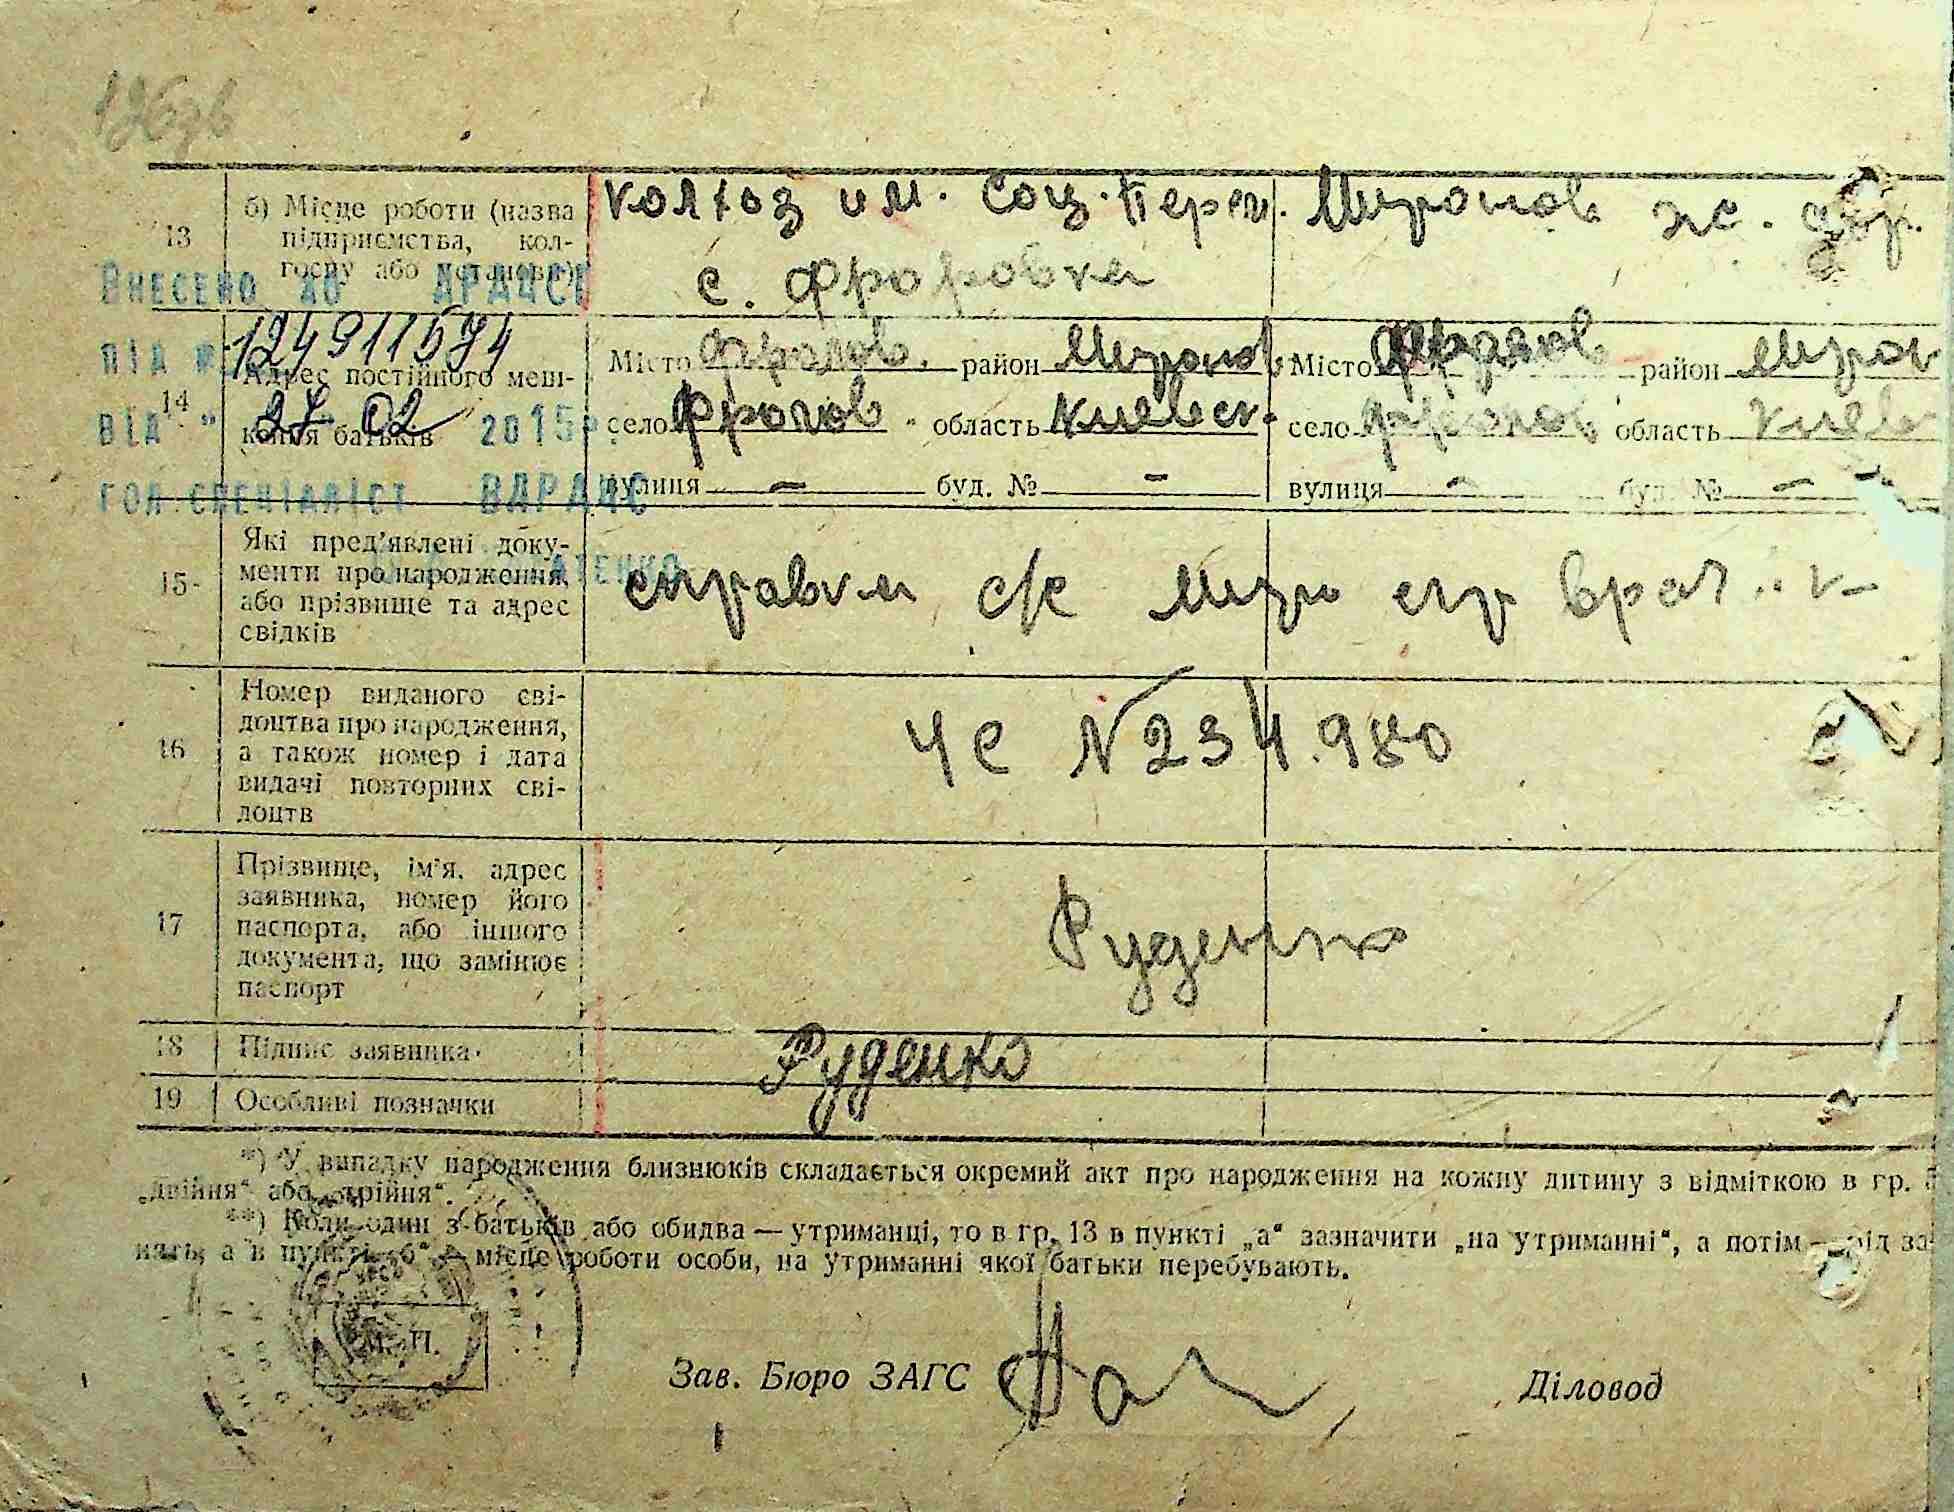 13
б) Місце роботи (назва
підприємства, кол-
госпу або установи)
колхоз им. Соц. Перем.
с. Фроловка
Миронов
Внесено до ДРАЦСГ
під № 1249117574
від " 27 " 02 2015р.
гол.спеціаліст ВДРАЦС
14
Адрес постійного меш-
кання батьків
Місто Фролов. район Миронов
село Фролов область Киевск.
вулиця — буд. № —
Місто Фролов район Мирон
село Фролов область Киев
вулиця — буд. № —
15
Які пред'явлені доку-
менти про народження,
або прізвище та адрес
свідків
справки с/с
16
Номер виданого сві-
доцтва про народження,
а також номер і дата
видачі повторних сві-
доцтв
ЧС № 234.980
17
Прізвище, ім'я, адрес
заявника, номер його
паспорта, або іншого
документа, що замінює
паспорт
Руденко
18
Підпис заявника
Руденко
19
Особливі позначки
*) У випадку народження близнюків складається окремий акт про народження на кожну дитину з відміткою в гр. 5
„двійня“ або „трійня“.
**) Коли один з батьків або обидва — утриманці, то в гр. 13 в пункті „а“ зазначити „на утриманні“, а потім — рід за-
нять, а в пункті „б“ — місце роботи особи, на утриманні якої батьки перебувають.
М. П.
Зав. Бюро ЗАГС
Діловод